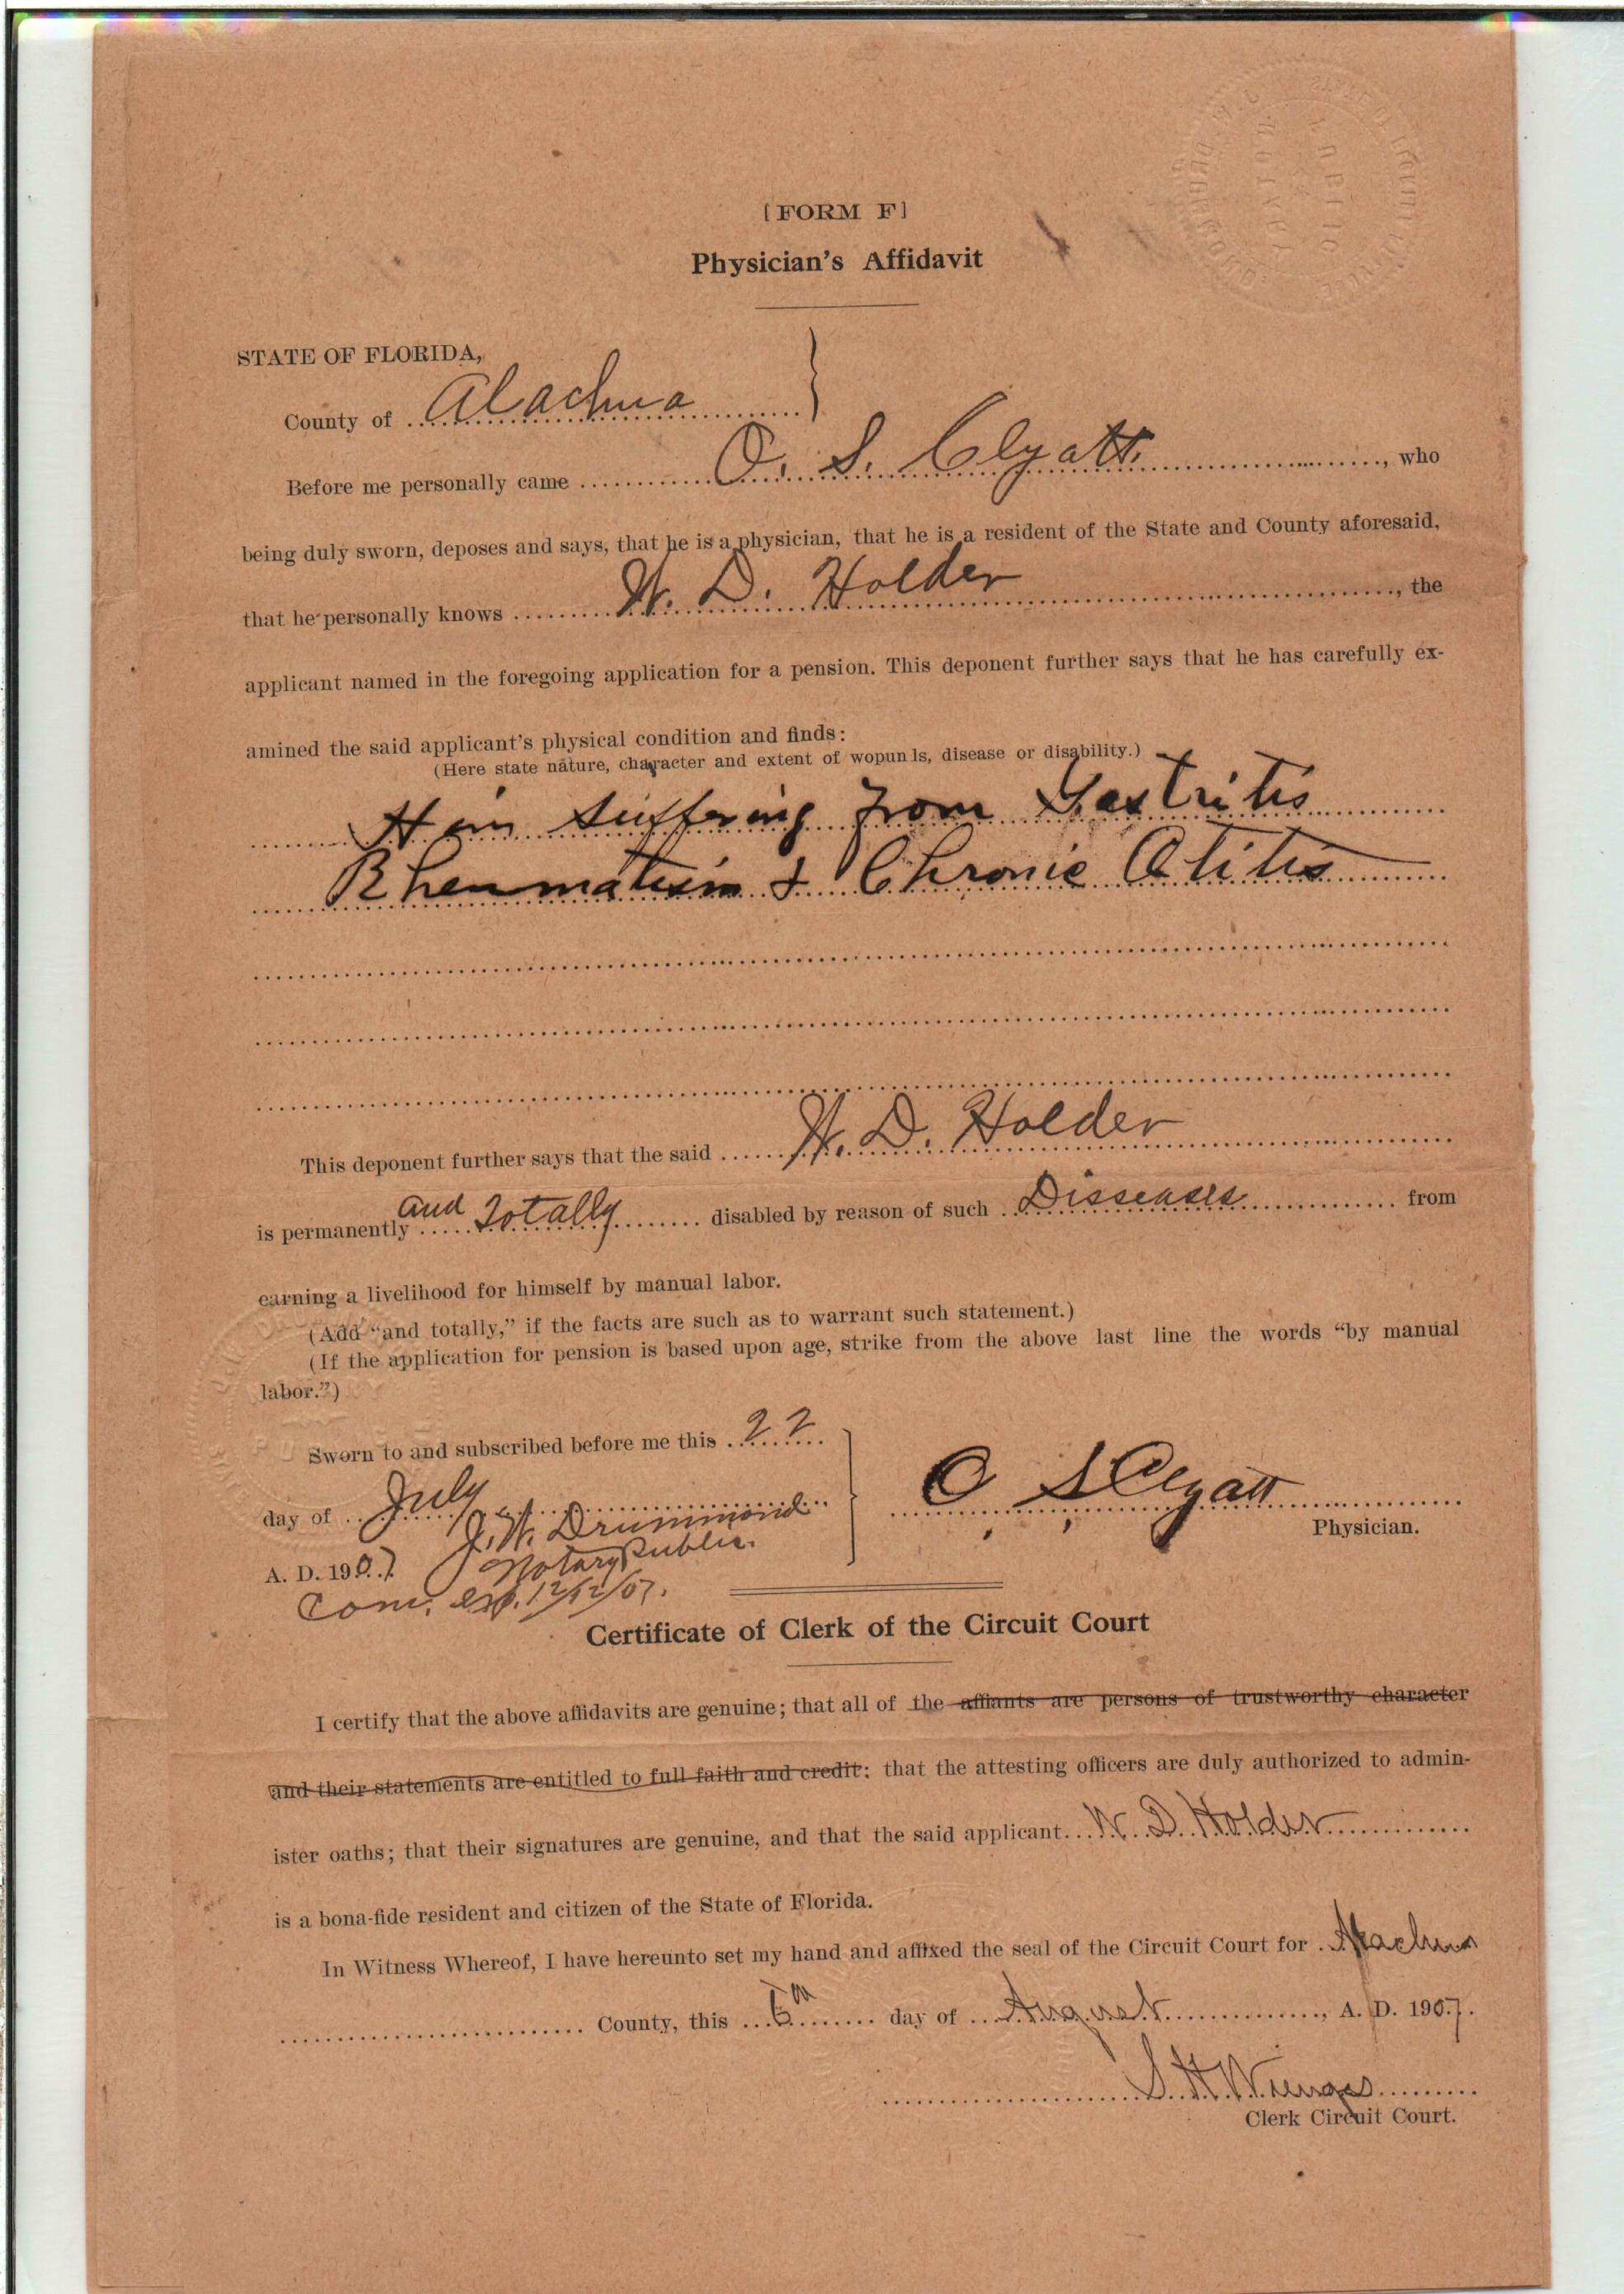 [FORM F]
Physician's Affidavit
STATE OF FLORIDA,
County of Alachua
Before me personally came O. S. Clyatt, who
being duly sworn, deposes and says, that he is a physician, that he is a resident of the State and County aforesaid,
that he personally knows W. D. Holder, the
applicant named in the foregoing application for a pension. This deponent further says that he has carefully ex-
amined the said applicant's physical condition and finds:
(Here state nature, character and extent of wopunls, disease or disability.)
Him suffering from Gastritis
Rheumatism & Chronic Otitis
This deponent further says that the said W. D. Holder
is permanently and Totally disabled by reason of such Disseases from
earning a livelihood for himself by manual labor.
(Add "and totally," if the facts are such as to warrant such statement.)
(If the application for pension is based upon age, strike from the above last line the words "by manual
labor.")
Sworn to and subscribed before me this 22
day of July
A. D. 1907
J. W. Drummond
Notary Public.
Com. exp. 12/12/07.
O S Clyatt
Physician.
Certificate of Clerk of the Circuit Court
I certify that the above affidavits are genuine; that all of the affiants are persons of trustworthy character
and their statements are entitled to full faith and credit: that the attesting officers are duly authorized to admin-
ister oaths; that their signatures are genuine, and that the said applicant W. D. Holder
is a bona-fide resident and citizen of the State of Florida.
In Witness Whereof, I have hereunto set my hand and affixed the seal of the Circuit Court for Alachua
County, this 6th day of August, A. D. 1907.
S. H. Wienges
Clerk Circuit Court.